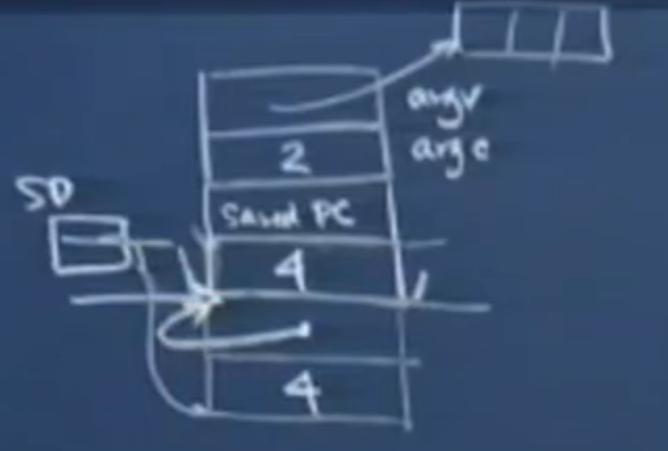 argv
2
argc
SP
Saved PC
4
4